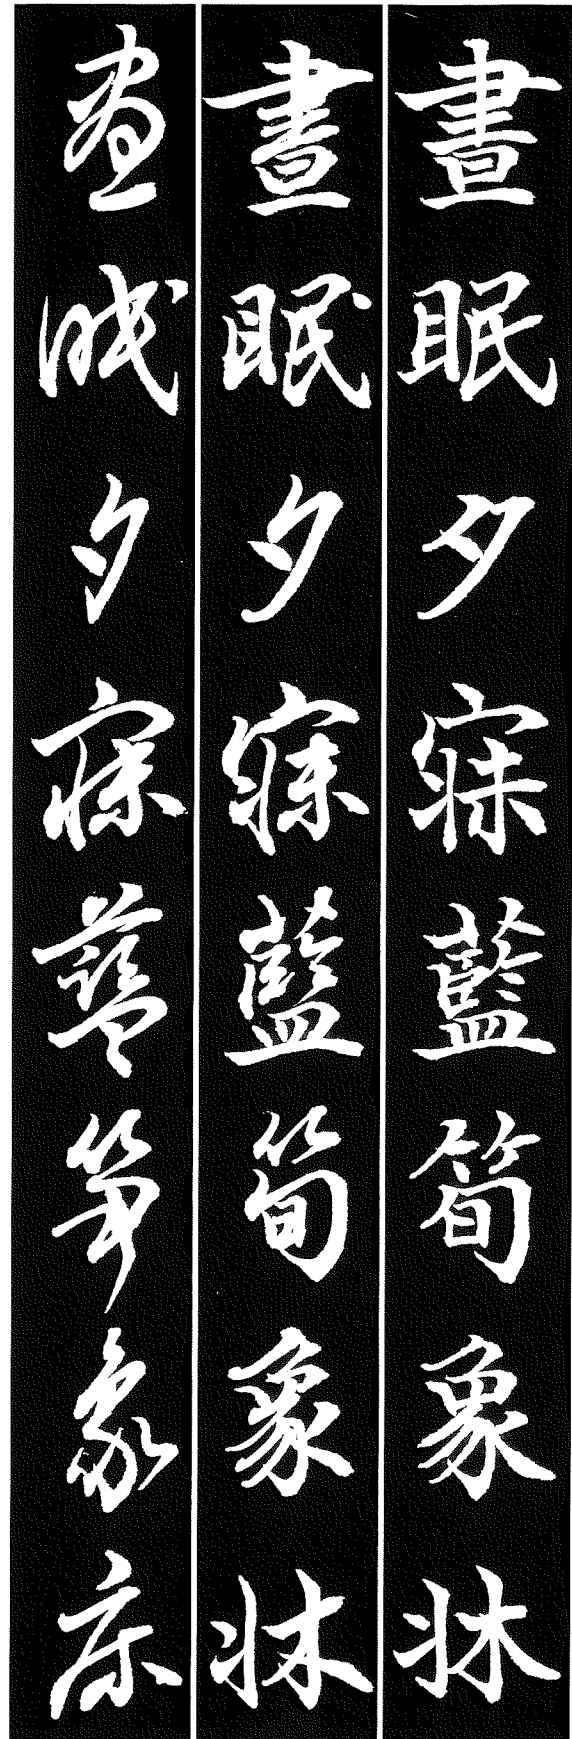 晝眠夕寐藍筍象牀
晝眠夕寐藍筍象牀
晝眠夕寐藍笋象床